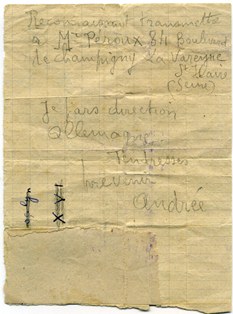 Reconnaissant transmettre
a Mr Peroux 84 Boulevard
de champigny La Varenne
St Hilaire
(Seine)
Je pars direction
Allemagne
Tendresses
André
XVI